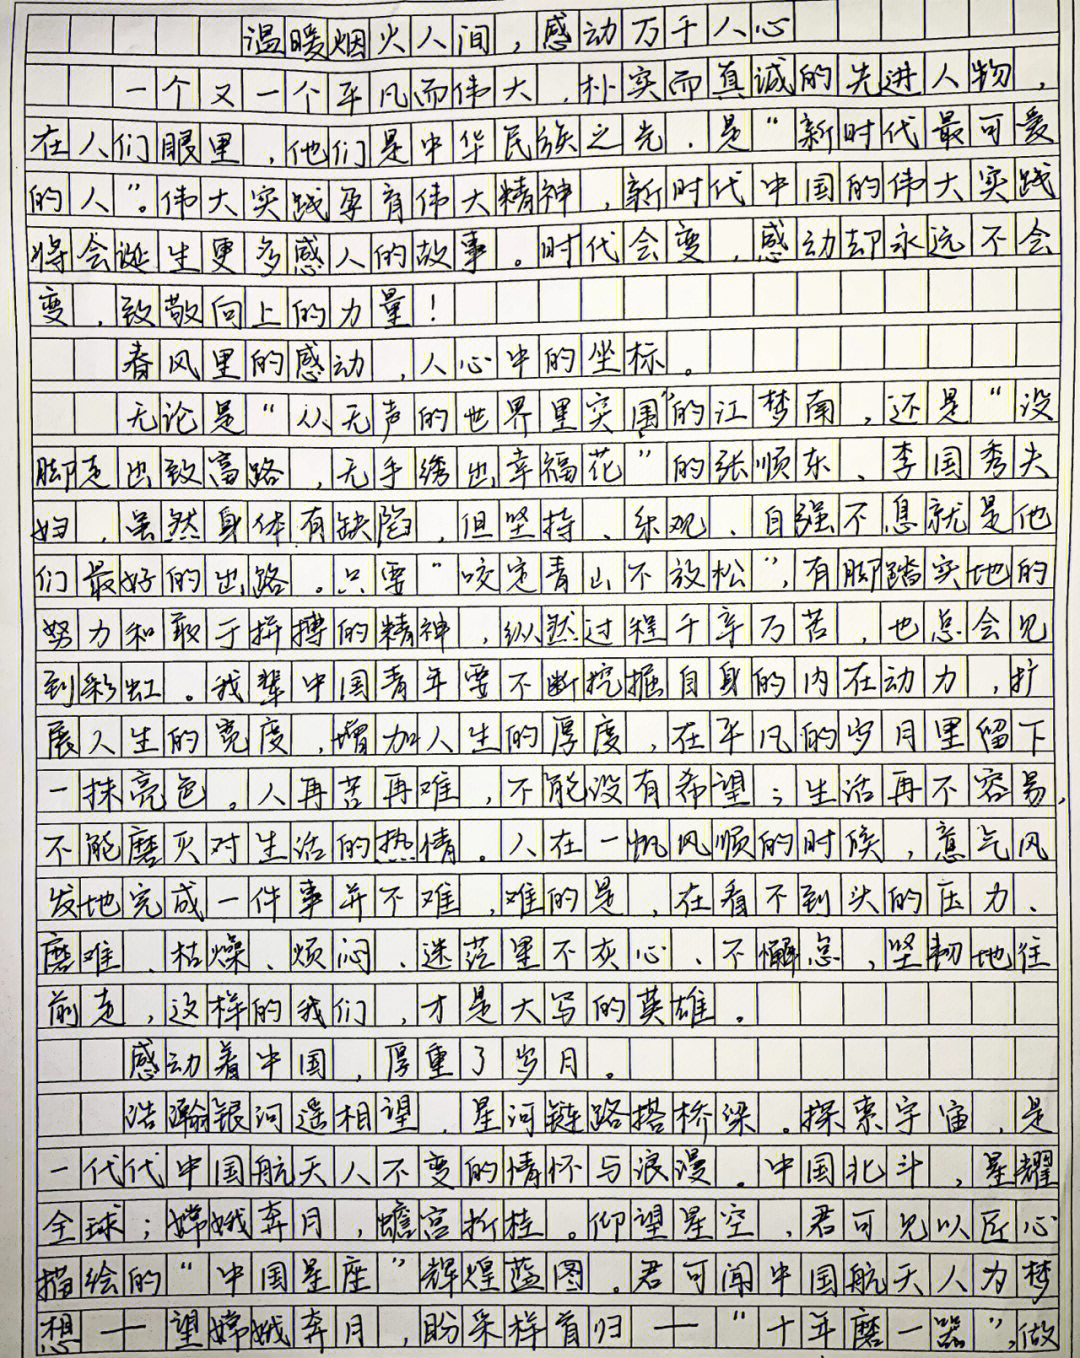 温暖烟火人间，感动万千人心
一个又一个平凡而伟大，朴实而真诚的先进人物，
在人们眼里，他们是中华民族之光，是“新时代最可爱
的人”。伟大实践孕育伟大精神，新时代中国的伟大实践
将会诞生更多感人的故事。时代会变，感动却永远不会
变，致敬向上的力量！
春风里的感动，人心中的坐标。
无论是“从无声的世界里突围”的江梦南，还是“没
脚走出致富路，无手绣出幸福花”的张顺东、李国秀夫
妇，虽然身体有缺陷，但坚持、乐观、自强不息就是他
们最好的出路。只要“咬定青山不放松”，有脚踏实地的
努力和敢于拼搏的精神，纵然过程千辛万苦，也总会见
到彩虹。我辈中国青年要不断挖掘自身的内在动力，扩
展人生的宽度，增加人生的厚度，在平凡的岁月里留下
一抹亮色。人再苦再难，不能没有希望；生活再不容易，
不能磨灭对生活的热情。人在一帆风顺的时候，意气风
发地完成一件事并不难，难的是，在看不到头的压力、
磨难、枯燥、烦闷、迷茫里不灰心、不懈怠，坚韧地往
前走，这样的我们，才是大写的英雄。
感动着中国，厚重了岁月。
浩瀚银河遥相望，星河链路搭桥梁。探索宇宙，是
一代代中国航天人不变的情怀与浪漫。中国北斗，星耀
全球；嫦娥奔月，蟾宫折桂。仰望星空，君可见以匠心
描绘的“中国星座”辉煌蓝图。君可闻中国航天人为梦
想——望嫦娥奔月，盼采样首归——“十年磨一器”，做